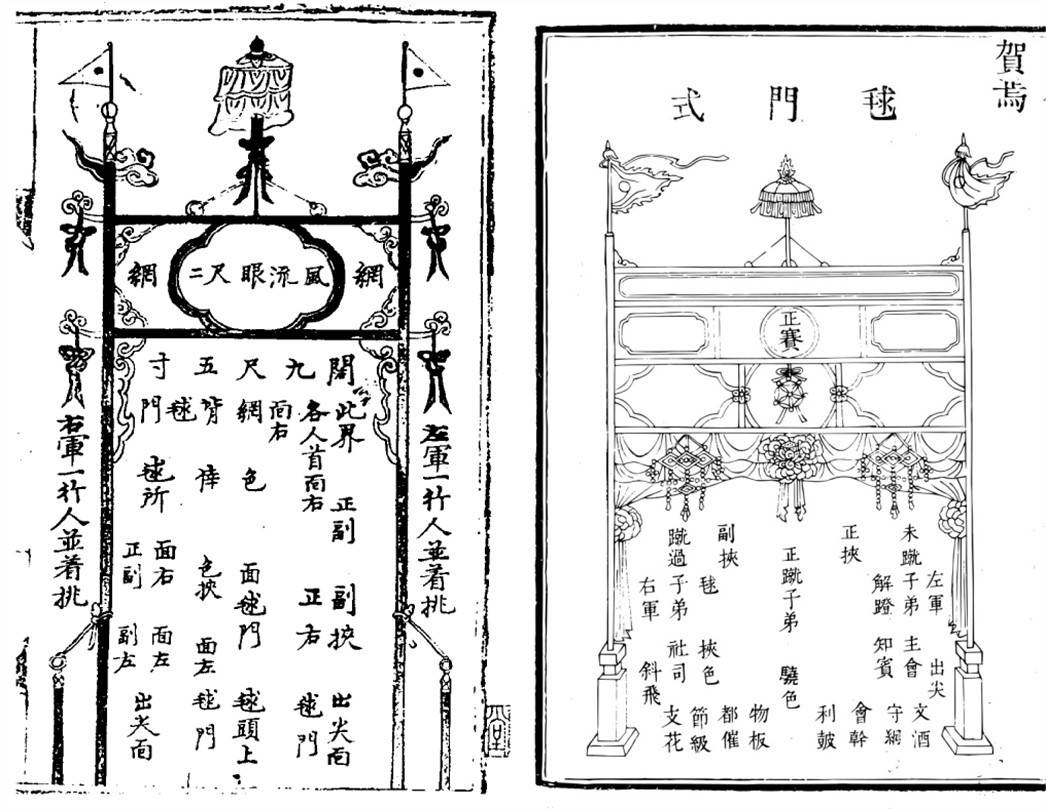 網 風流眼尺二 網
左軍一行人並着挑
闊此界 正副 副挾 出尖面
九 各人首面右 正右 毬門
面右
尺網色 面毬門 毬頭上
五背 色挾 面左 毬門
毬
寸門 毬所 面右 面左 出尖面
正副 副左
右軍一行人並着挑
賀焉
毬門式
正賽
左軍 出尖
未蹴子弟 主會 文酒
解蹬 知賓 守網
正挾 會幹
利皷
正蹴子弟 驍色
物板
副挾 都催
毬 挾色 節級
蹴過子弟 社司 支花
右軍 斜飛